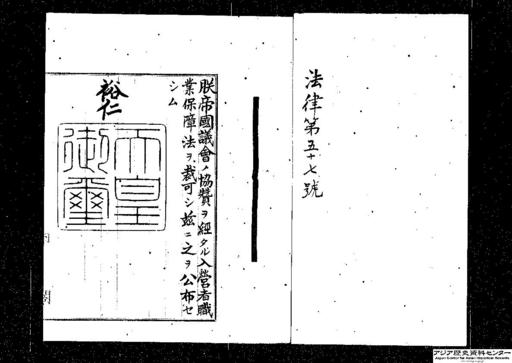 法律第五十七號
朕帝國議會ノ協贊ヲ經タル入營者職
業保障法ヲ裁可シ茲ニ之ヲ公布セ
シム
裕仁
天皇
御璽
内閣
アジア歴史資料センター
Japan Center for Asian Historical Records